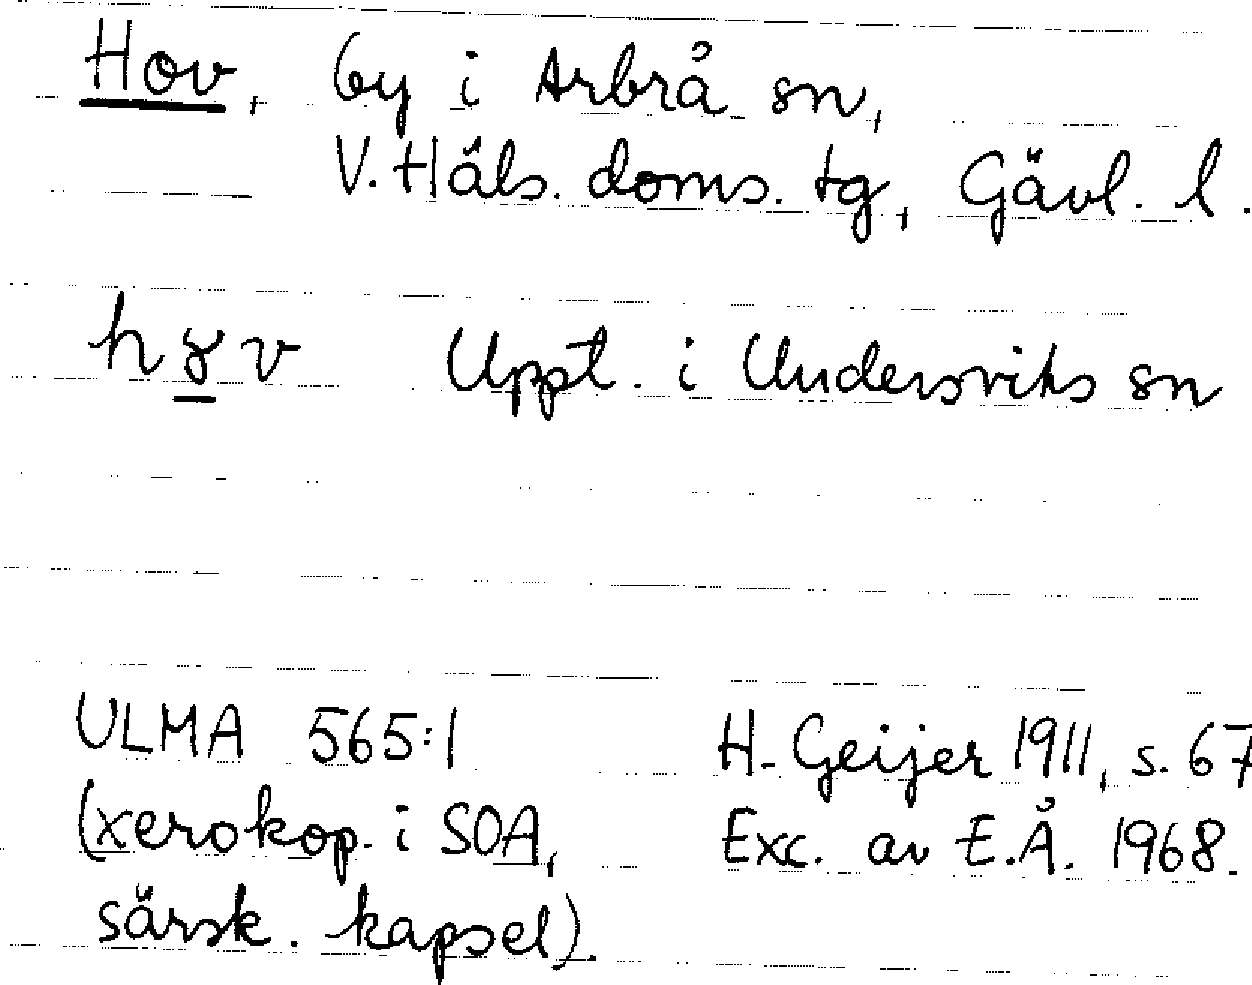 Hov, by i Arbrå sn,
V. Häls. doms. tg, Gävl. l.
hɤv Uppt. i Undersviks sn
ULMA 565:1 H. Geijer 1911, s. 67
(xerokop. i SOA, Exc. av E.Å. 1968.
särsk. kapsel).